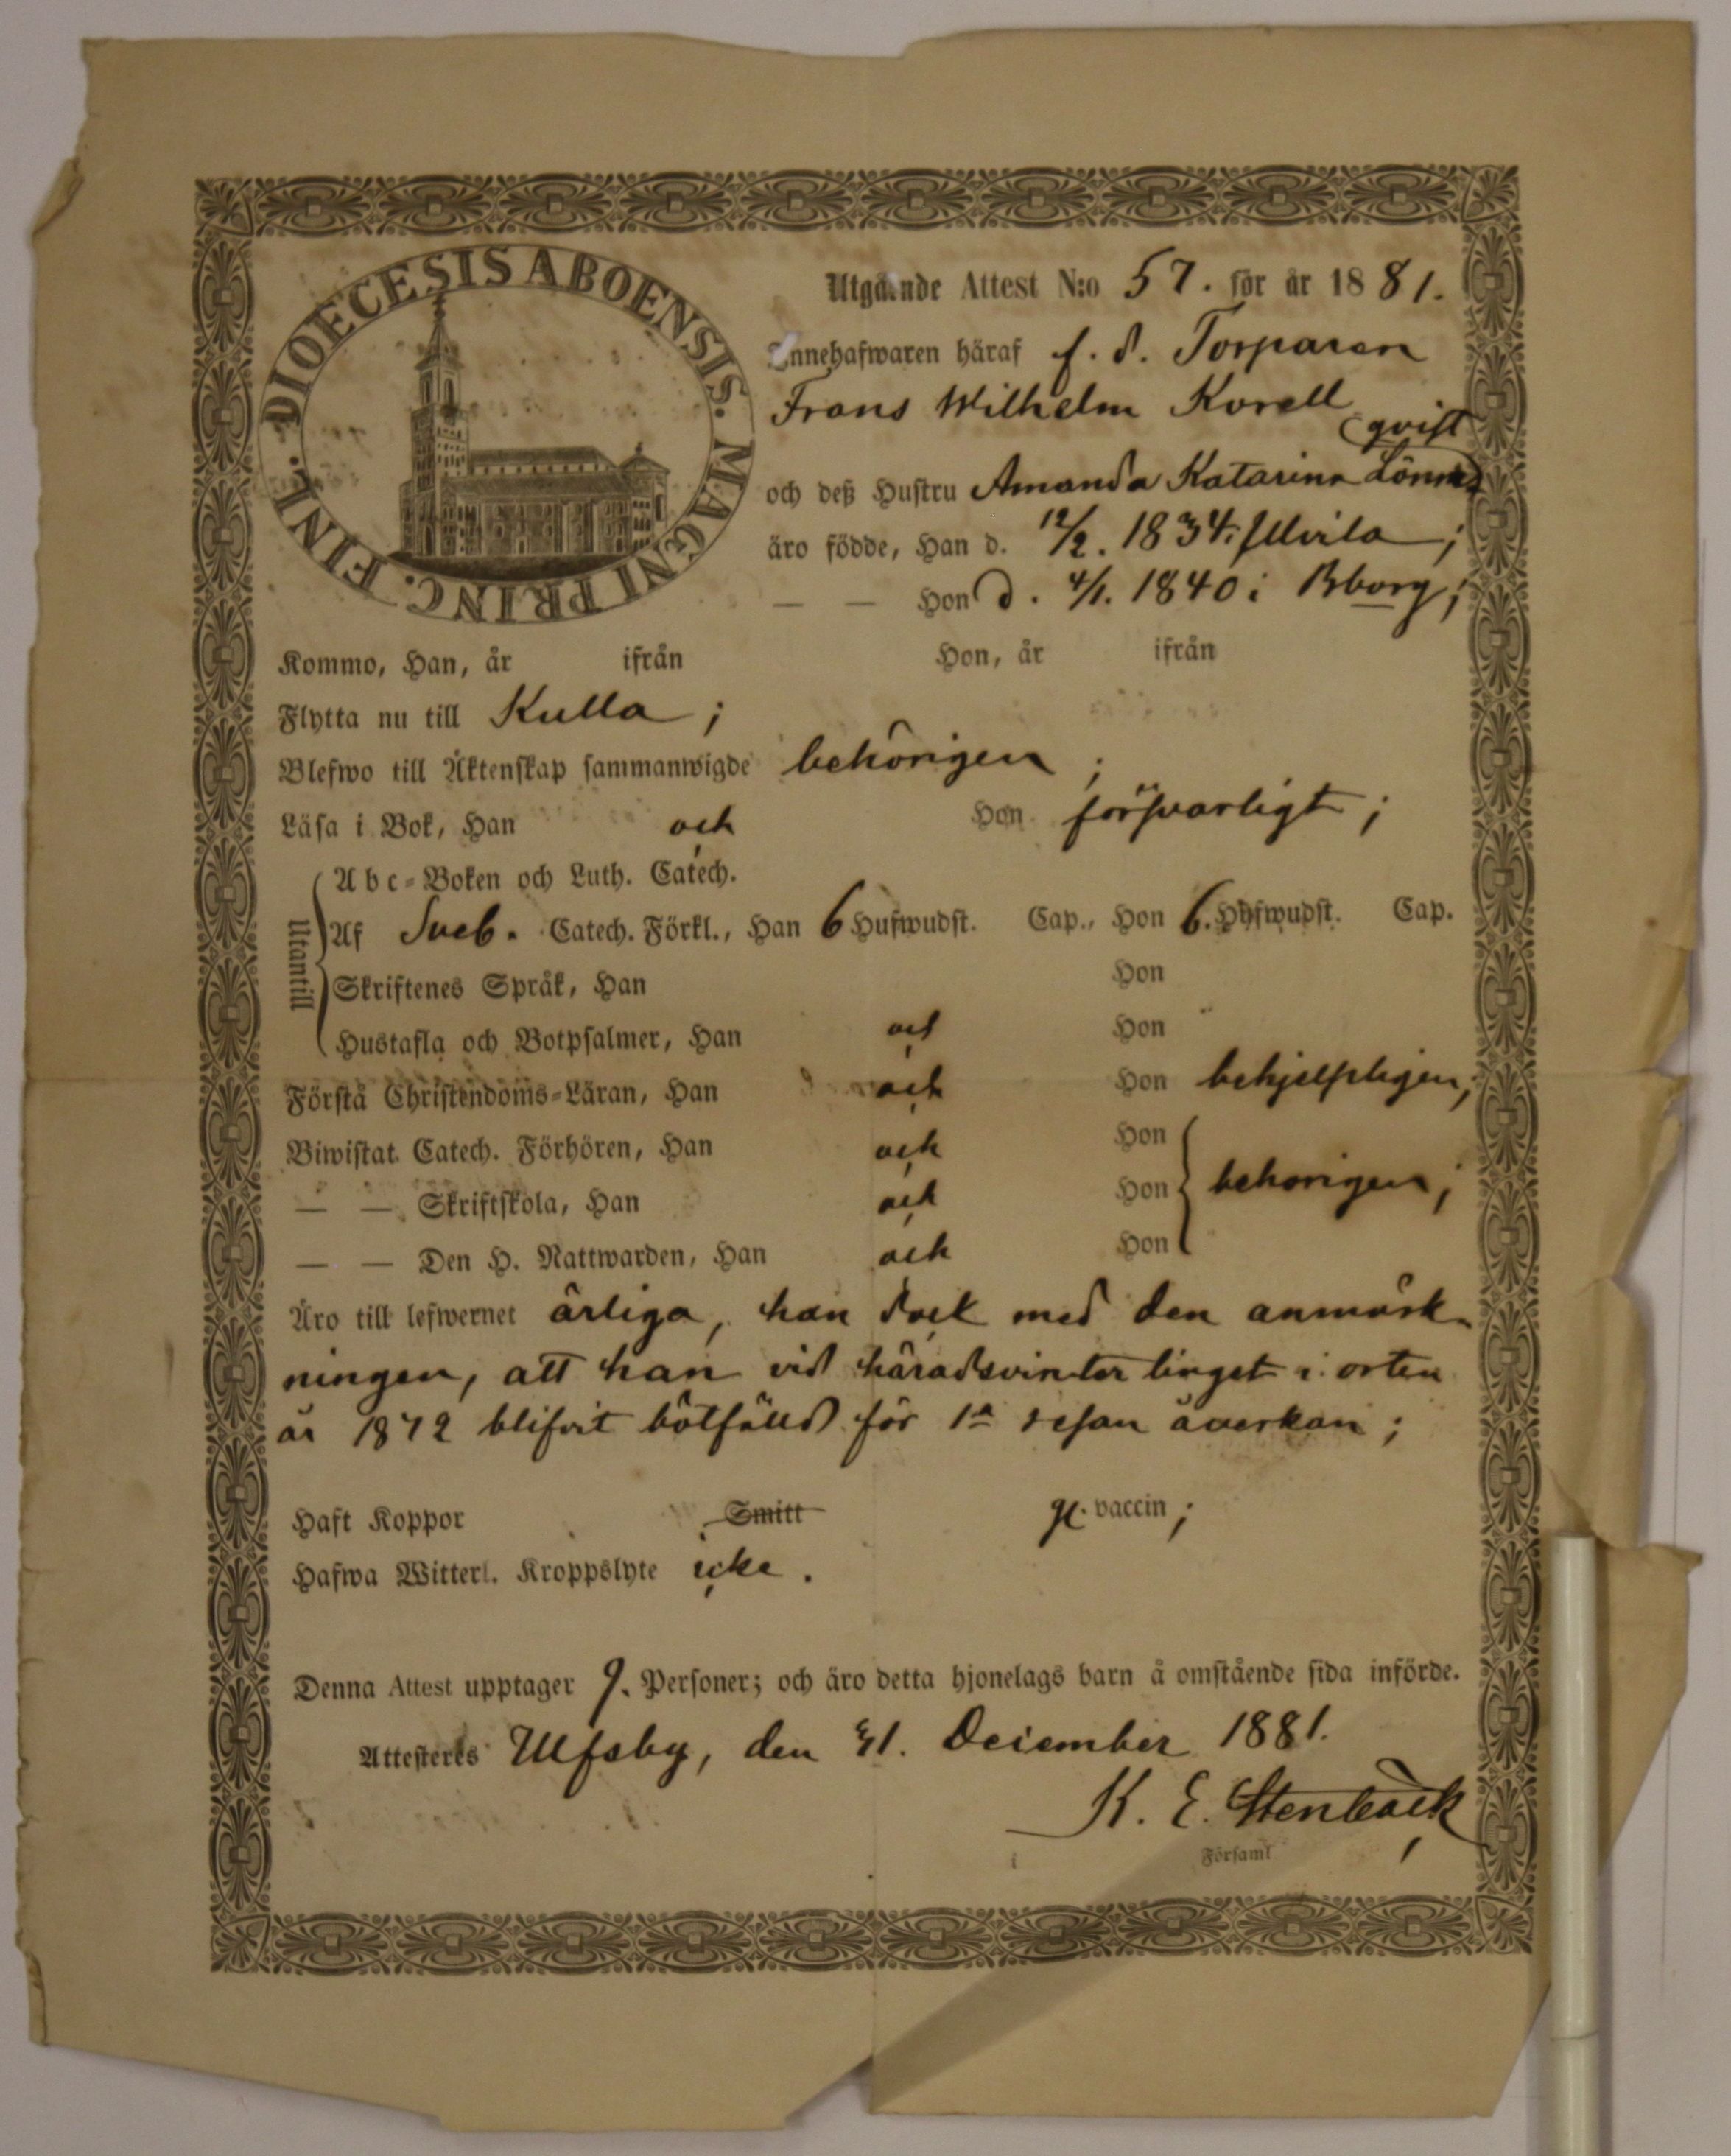 DIOECESIS ABOENSIS. MAGNI PRINC. FINL.
Utgående Attest N:o 57. för år 1881.
Innehafwaren häraf f. d. Torparen
Frans Wilhelm Korell
och deß Hustru Amanda Katarina Lönnqvist
äro födde, Han d. 12/2. 1834 i Ulvila;
— — Hon d. 4/1. 1840 i Bborg;
Kommo, Han, år ifrån Hon, år ifrån
Flytta nu till Kulla;
Blefwo till Äktenskap sammanwigde behörigen;
Läsa i Bok, Han och Hon försvarligt;
Utantill
Abc-Boken och Luth. Catech.
Af Sveb. Catech. Förkl., Han 6 Hufwudst. Cap., Hon 6. Hufwudst. Cap.
Skriftenes Språk, Han Hon
Hustafla och Botpsalmer, Han och Hon
Förstå Christendoms-Läran, Han och Hon behjelpligen;
Biwistat Catech. Förhören, Han och Hon
— — Skriftskola, Han och Hon behörigen;
— — Den H. Nattwarden, Han och Hon
Äro till lefwernet ärliga, han dock med den anmärk-
ningen, att han vid häradsvintertinget i orten
år 1872 blifvit bötfälld för 1a resan åverkan;
Haft Koppor Smitt gt. vaccin;
Hafwa Witterl. Kroppslyte icke.
Denna Attest upptager 9. Personer; och äro detta hjonelags barn å omstående sida införde.
Attesteres Ulfsby, den 31. December 1881.
K. E. Stenbäck
i Församl